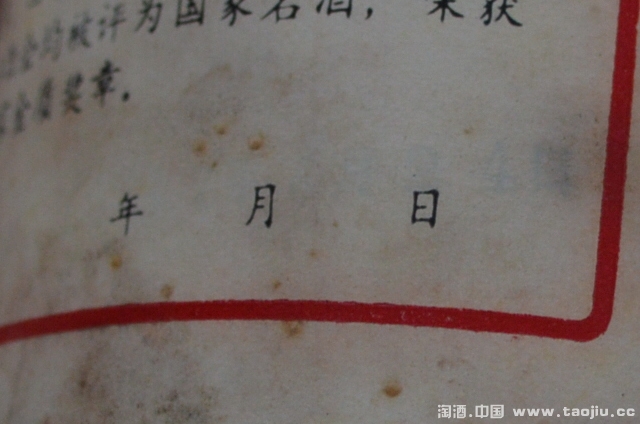 被评为国家名酒，荣获
奖章。
年 月 日
淘酒.中国 www.taojiu.cc